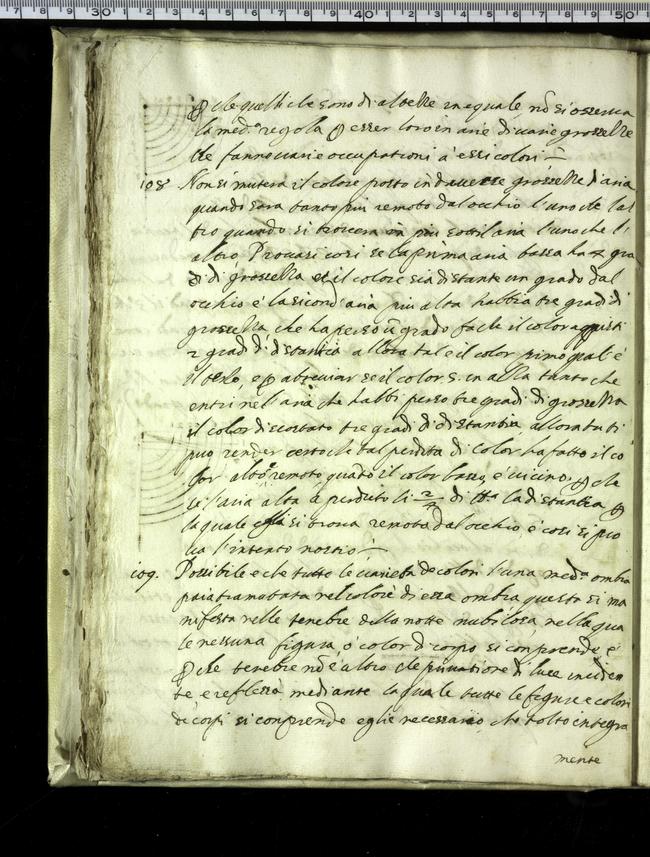 30 40 50
che quelli che sono di altezze inequale nõ si osserua
la med.ª regola esser loro in arie di uarie grossezze
che fanno uarie occupationi à essi colori
108 Non si mutera il colore posto in diuerse grossezze d'aria
quando sara tanto piu remoto dal occhio l'uno che l'al
tro quando si trouera in piu sottil aria l'uno che l'
altro. Prouasi cosi se la prima aria bassa ha 4 gra
di di grossezza et il colore sia distante un grado dal
occhio e la second'aria piu alta habbia tre gradi di
grossezza che ha perso ũ grado fa che il color aquisti
gradi di distantia allora tal e il color primo qual è
il terzo, e abreuiar se il color s. in alza tanto che
entri nell'aria che habbi perso tre gradi di grossezza
il color discostato tre gradi di distantia, allora tu ti
puo render certo che tal perdita di color ha fatto il co
lor alto remoto quãto il color basso, e uicino, che
se l'aria alta à perduto li di la distantia
la quale essa si troua remota dal occhio, è cosi si pro
ua l'intento nostro
109. Possibile e che tutte le uarieta de colori l'una med.ª ombra
paia tramutata nel colore di essa ombra questo si ma
nifesta nelle tenebre della notte nubilosa, nella qua
le nessuna figura, ò color di corpo si comprende è
che tenebre nõ e altro che priuatione di luce inciden
te e reflessa, mediante la quale tutte le figure e colori
de corpi si comprende egli e necessario, che tolto integra
mente